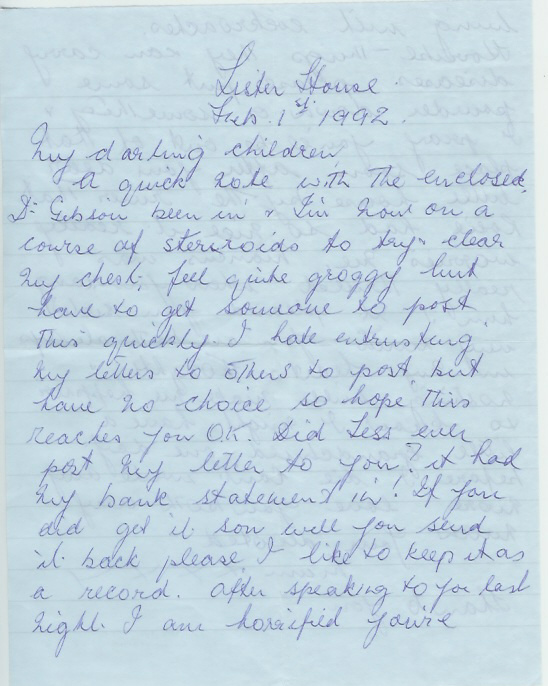 Lister House.
Feb. 1st 1992.
My darling children,
A quick note with the enclosed,
Dr Gibson been in & I'm now on a
course of steroids to try & clear
my chest, feel quite groggy but
have to get someone to post
this quickly. I hate entrusting
my letters to others to post but
have no choice so hope this
reaches you OK. Did Less ever
post my letter to you? it had
my bank statement in! If you
did get it son will you send
it back please, I like to keep it as
a record. After speaking to you last
night. I am horrified you're